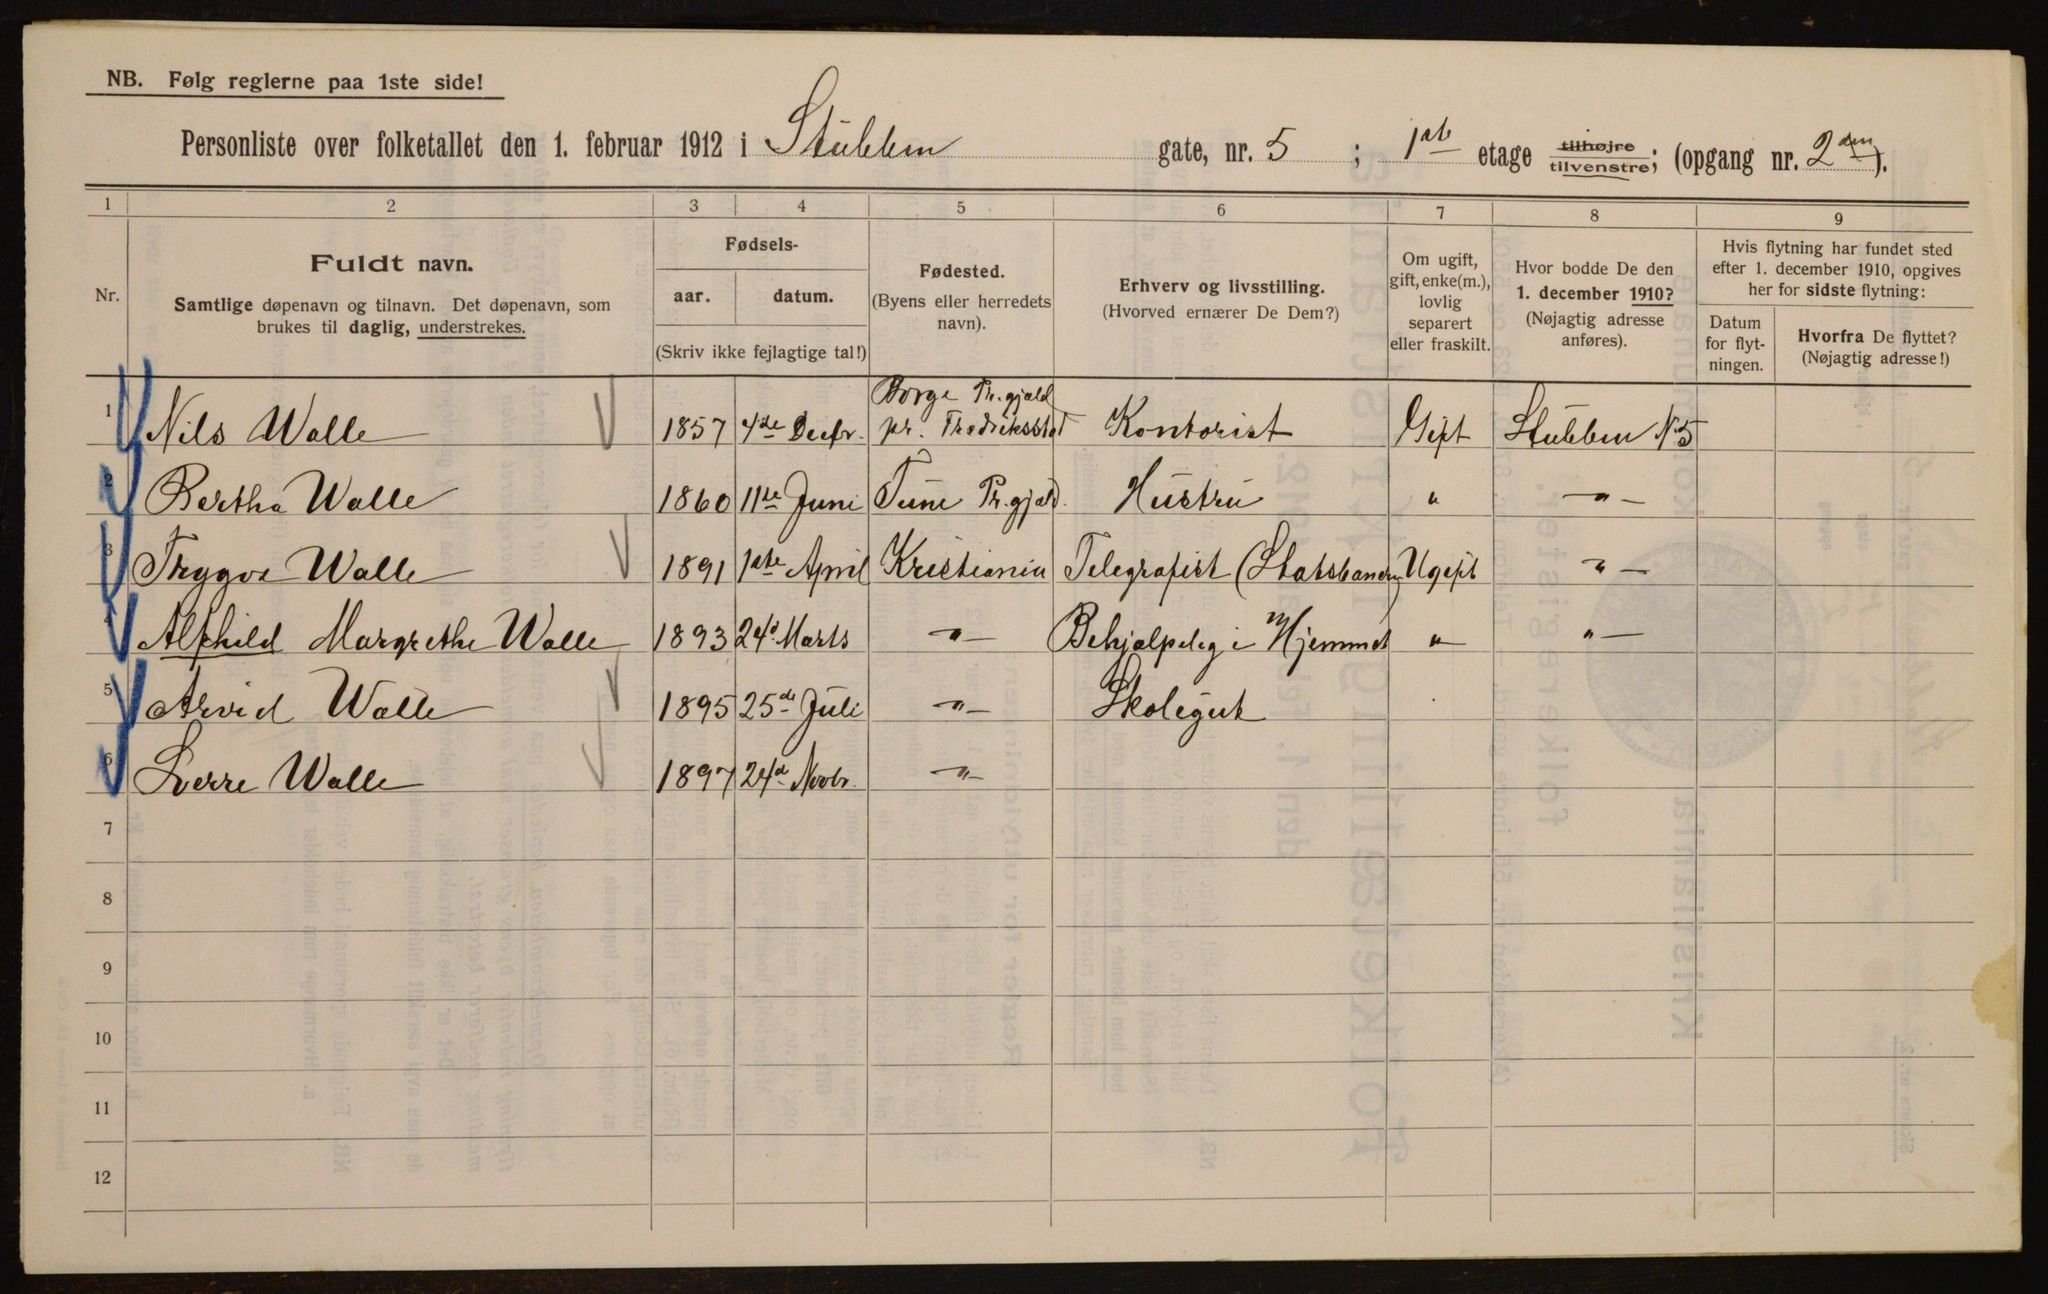 NB. Følg reglerne paa 1ste side!
Personliste over folketallet den 1. februar 1912 i Stubben gate, nr. 5 ; 1ste etage tilhøjre tilvenstre; (opgang nr. 2den).
1 2 3 4 5 6 7 8 9
Nr. Fuldt navn. Samtlige døpenavn og tilnavn. Det døpenavn, som brukes til daglig, understrekes.
Fødsels- aar. datum. (Skriv ikke fejlagtige tal!)
Fødested. (Byens eller herredets navn).
Erhverv og livsstilling. (Hvorved ernærer De Dem?)
Om ugift, gift, enke(m.), lovlig separert eller fraskilt.
Hvor bodde De den 1. december 1910? (Nøjagtig adresse anføres).
Hvis flytning har fundet sted efter 1. december 1910, opgives her for sidste flytning:
Datum for flytningen. Hvorfra De flyttet? (Nøjagtig adresse!)
1 Nils Walle 1857 4de Decbr. Borge Pr.gjeld pr. Fredriksstad Kontorist Gift Stubben N 5
2 Bertha Walle 1860 11te Juni Tune Pr.gjeld. Hustru " — " —
3 Trygve Walle 1891 1ste April Kristiania Telegrafist (Statsbanen) Ugift — " —
4 Alfhild Margrethe Walle 1893 24d Marts — " — Behjælpelig i Hjemmet " — " —
5 Arvid Walle 1895 25de Juli — " — Skolegut
6 Sverre Walle 1897 24d Novbr. — " —
7
8
9
10
11
12